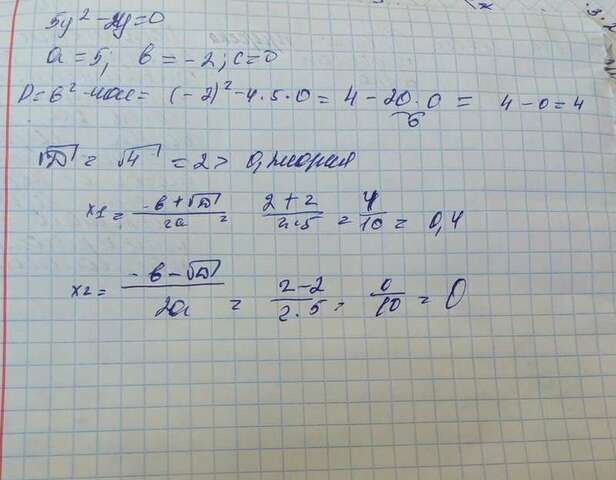 5y² - 2y = 0
a = 5, в = -2; c = 0
D = в² - 4ac = (-2)² - 4·5·0 = 4 - 20·0 = 4 - 0 = 4
0
√D = √4 = 2 > 0, 2 корня
x1 = (-в + √D)/2a = (2 + 2)/(2·5) = 4/10 = 0,4
x2 = (-в - √D)/2a = (2 - 2)/(2·5) = 0/10 = 0